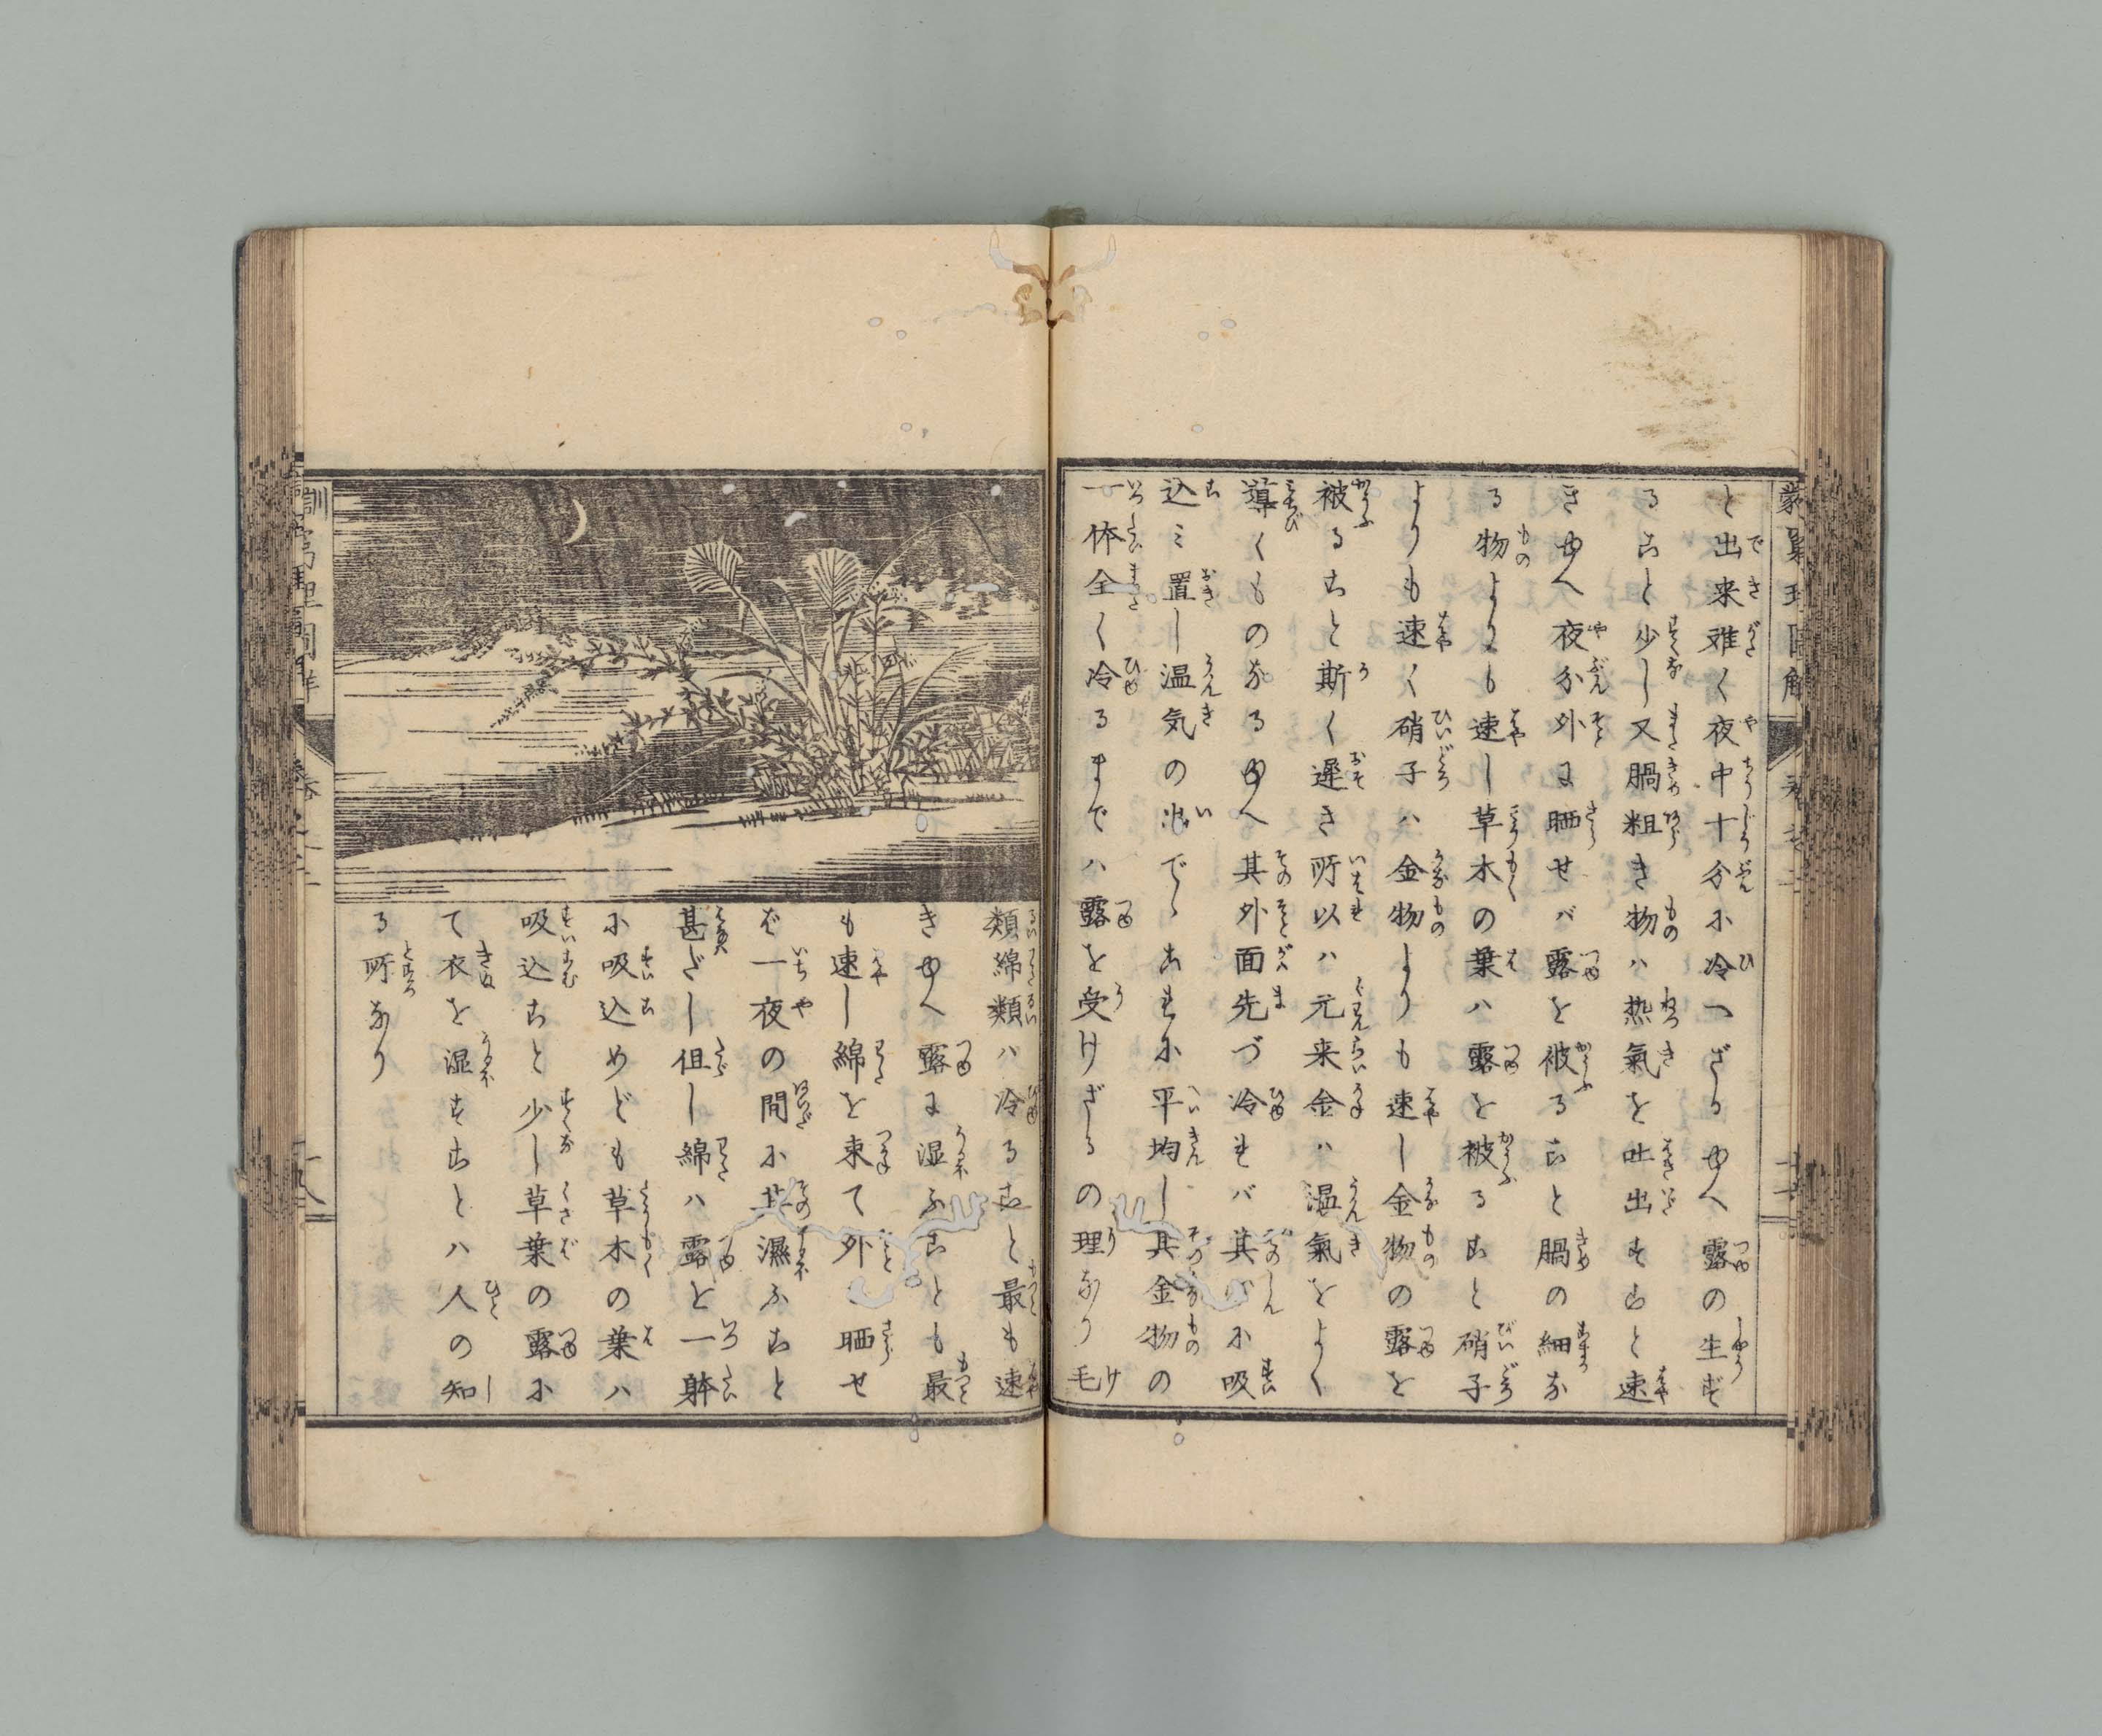 と出来難く夜中十分に冷へざるゆへ露の生ず
ること少し又膓粗き物ハ熱氣を吐出すこと速
きゆへ夜分外に晒せバ露を被ること膓の細な
る物よりも速し草木の葉ハ露を被ること硝子
よりも速く硝子ハ金物よりも速し金物の露を
被ること斯く遲き所以ハ元来金ハ温氣をよく
導くものなるゆへ其外面先づ冷れバ其心に吸
込ミ置し温気の出でゝこれに平均し其金物の
一体全く冷るまでハ露を受けざるの理なり毛
類綿類ハ冷ること最も速
きゆへ露に湿ふことも最
も速し綿を束て外に晒せ
ば一夜の間に其濕ふこと
甚だし但し綿ハ露を一躰
に吸込めども草木の葉ハ
吸込こと少し草葉の露に
て衣を湿すことハ人の知
る所なり